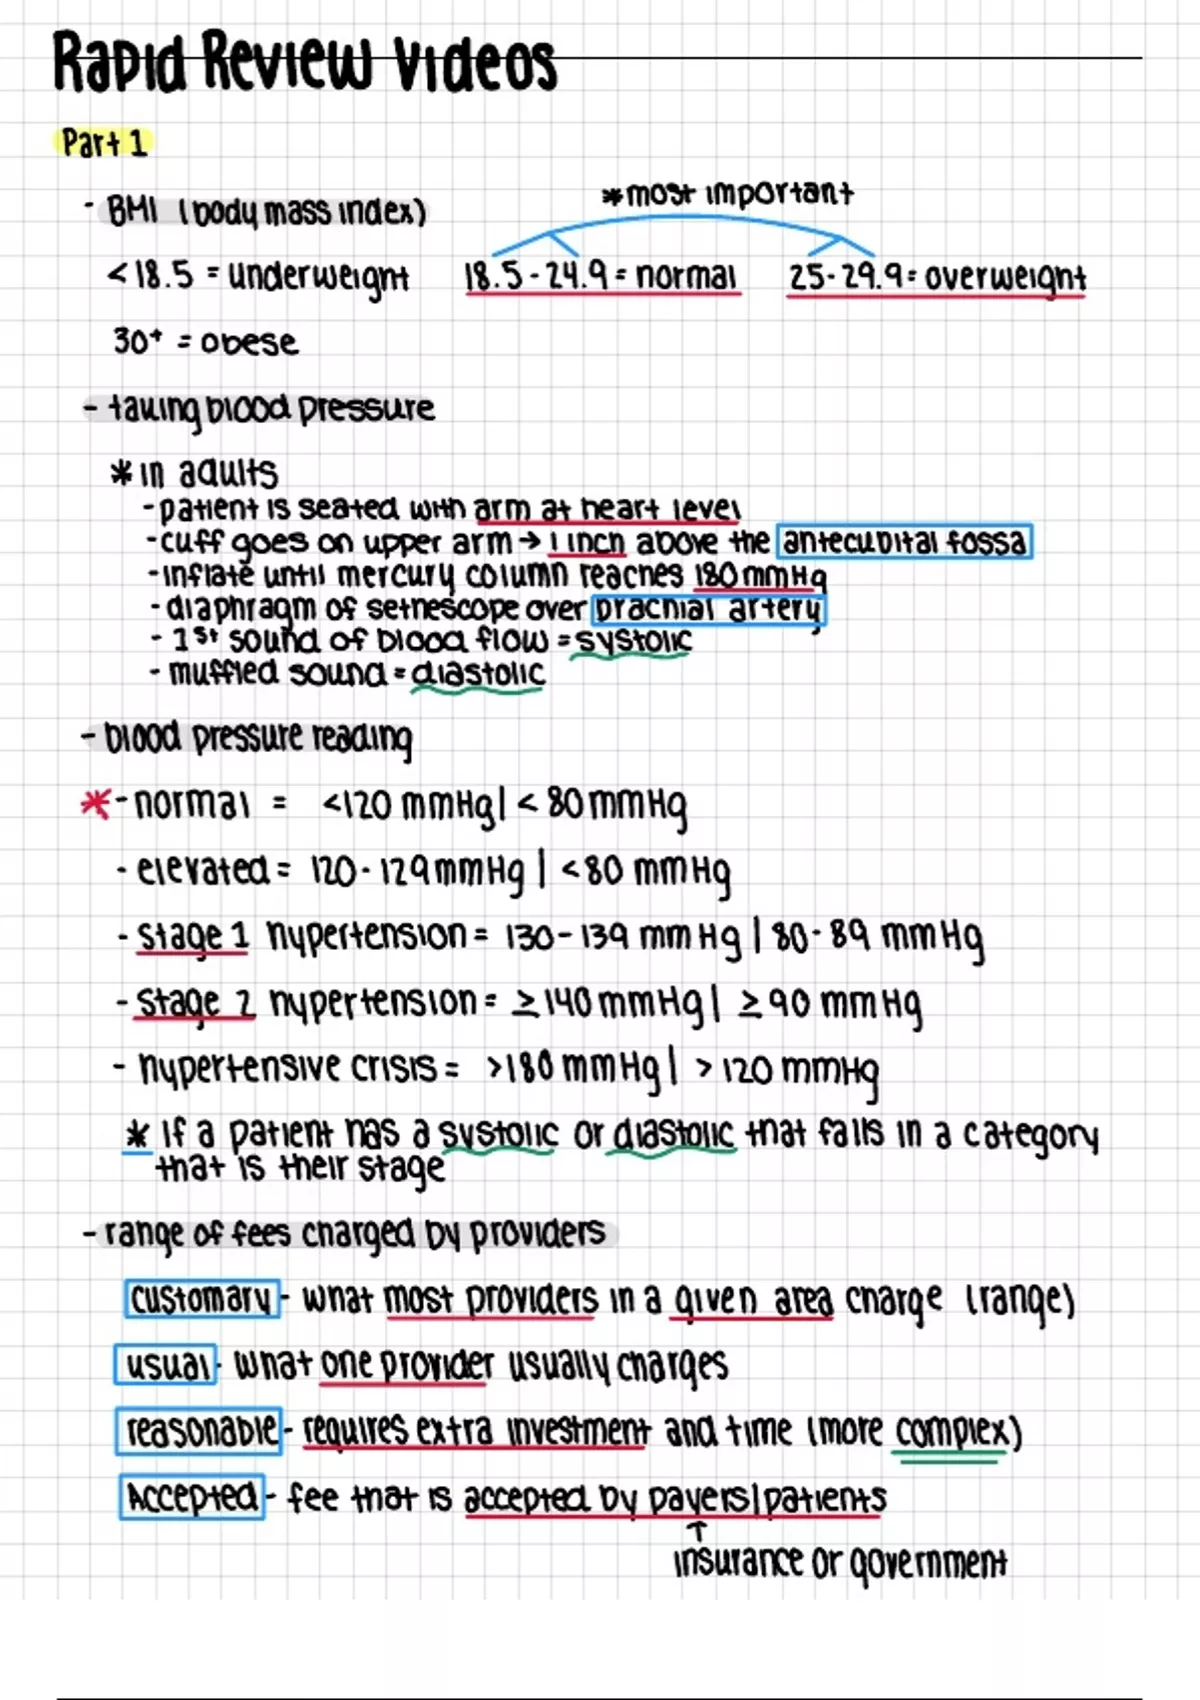 Rapid Review Videos
Part 1
- BMI (body mass index)
*most important
<18.5 = underweight 18.5-24.9 = normal 25-29.9 = overweight
30+ = obese
- taking blood pressure
* in adults
- patient is seated with arm at heart level
- cuff goes on upper arm → 1 inch above the antecubital fossa
- inflate until mercury column reaches 180 mmHg
- diaphragm of sethescope over brachial artery
- 1st sound of blood flow = systolic
- muffled sound = diastolic
- blood pressure reading
* - normal = <120 mmHg | < 80 mmHg
- elevated = 120-129 mmHg | <80 mmHg
- stage 1 hypertension = 130-139 mmHg | 80-89 mmHg
- stage 2 hypertension = ≥140 mmHg | ≥90 mmHg
- hypertensive crisis = >180 mmHg | >120 mmHg
* if a patient has a systolic or diastolic that falls in a category
that is their stage
- range of fees charged by providers
customary - what most providers in a given area charge (range)
usual - what one provider usually charges
reasonable - requires extra investment and time (more complex)
Accepted - fee that is accepted by payers|patients
↑
insurance or government